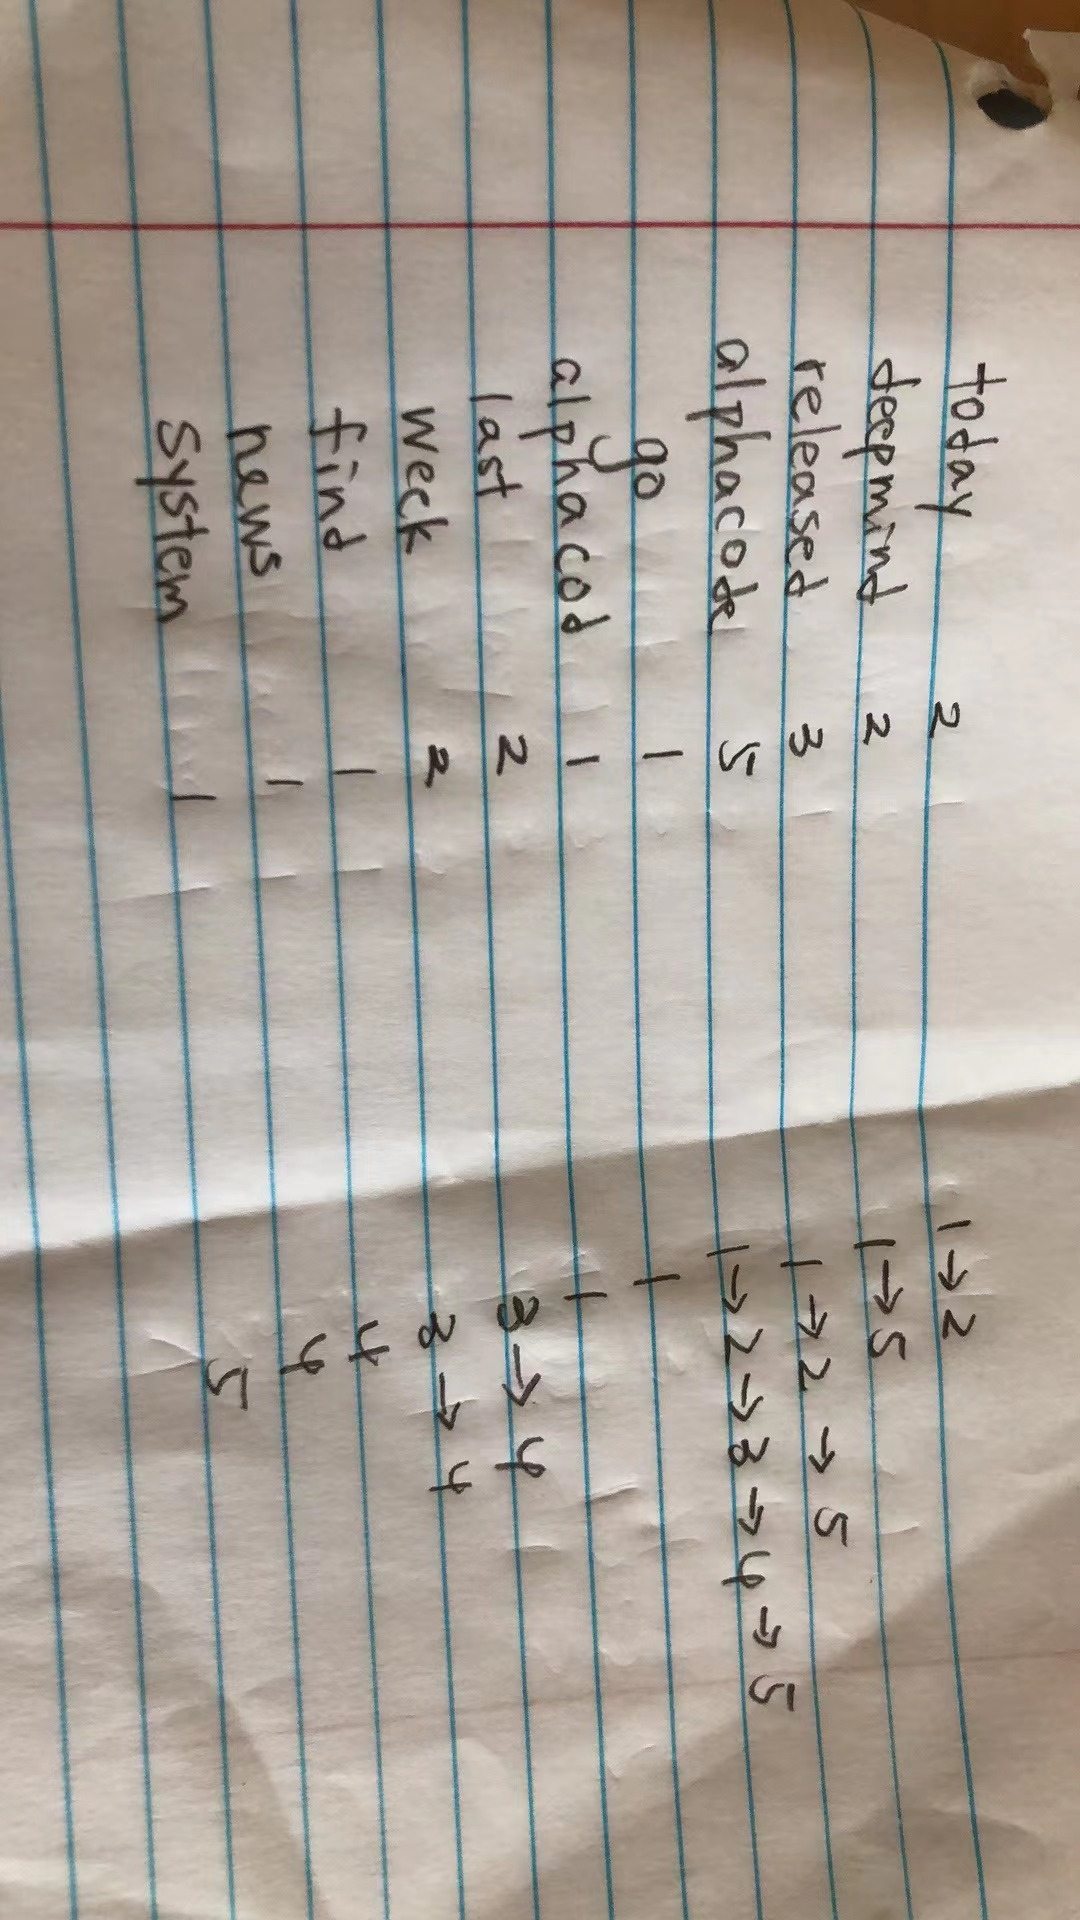 today 2 1→2
deepmind 2 1→5
released 3 1→2→5
alphacode 5 1→2→3→4→5
go 1 1
alphacod 1 1
last 2 3→4
week 2 3→4
find 1 4
news 1 4
system 1 5